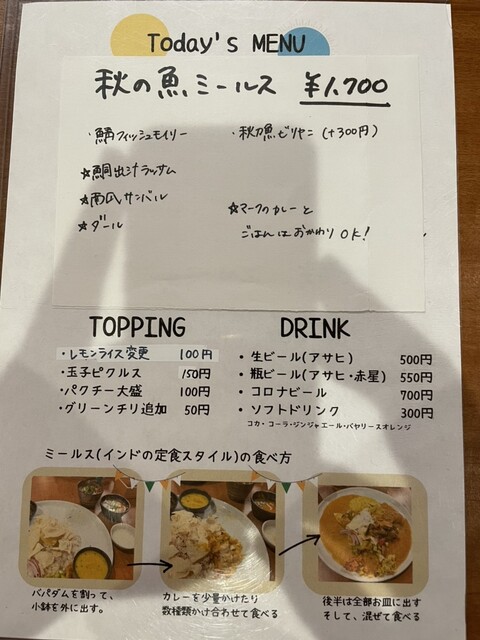 Today's MENU
秋の魚ミールス ¥1,700
・鯖フィッシュモイリー
・秋刀魚ビリヤニ (+300円)
☆鯛出汁ラッサム
☆南瓜サンバル
☆ダール
☆マークのカレーと
ごはんはおかわりOK!
TOPPING
・レモンライス変更 100円
・玉子ピクルス 150円
・パクチー大盛 100円
・グリーンチリ追加 50円
DRINK
・生ビール(アサヒ) 500円
・瓶ビール(アサヒ・赤星) 550円
・コロナビール 700円
・ソフトドリンク 300円
コカ・コーラ・ジンジャエール・バヤリースオレンジ
ミールス(インドの定食スタイル)の食べ方
パパダムを割って、
小鉢を外に出す。
カレーを少量かけたり
数種類かけ合わせて食べる
後半は全部お皿に出す
そして、混ぜて食べる